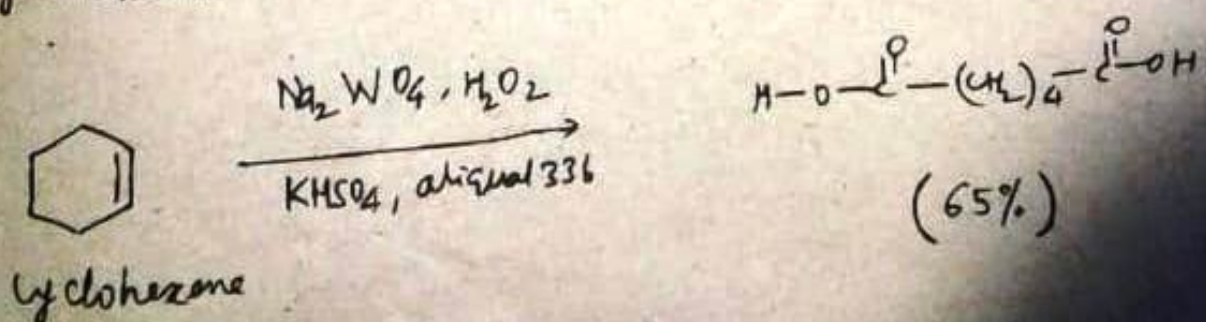 Na2WO4, H2O2
KHSO4, aliqual 336
H-O-C(=O)-(CH2)4-C(=O)-OH
(65%)
Cyclohexene